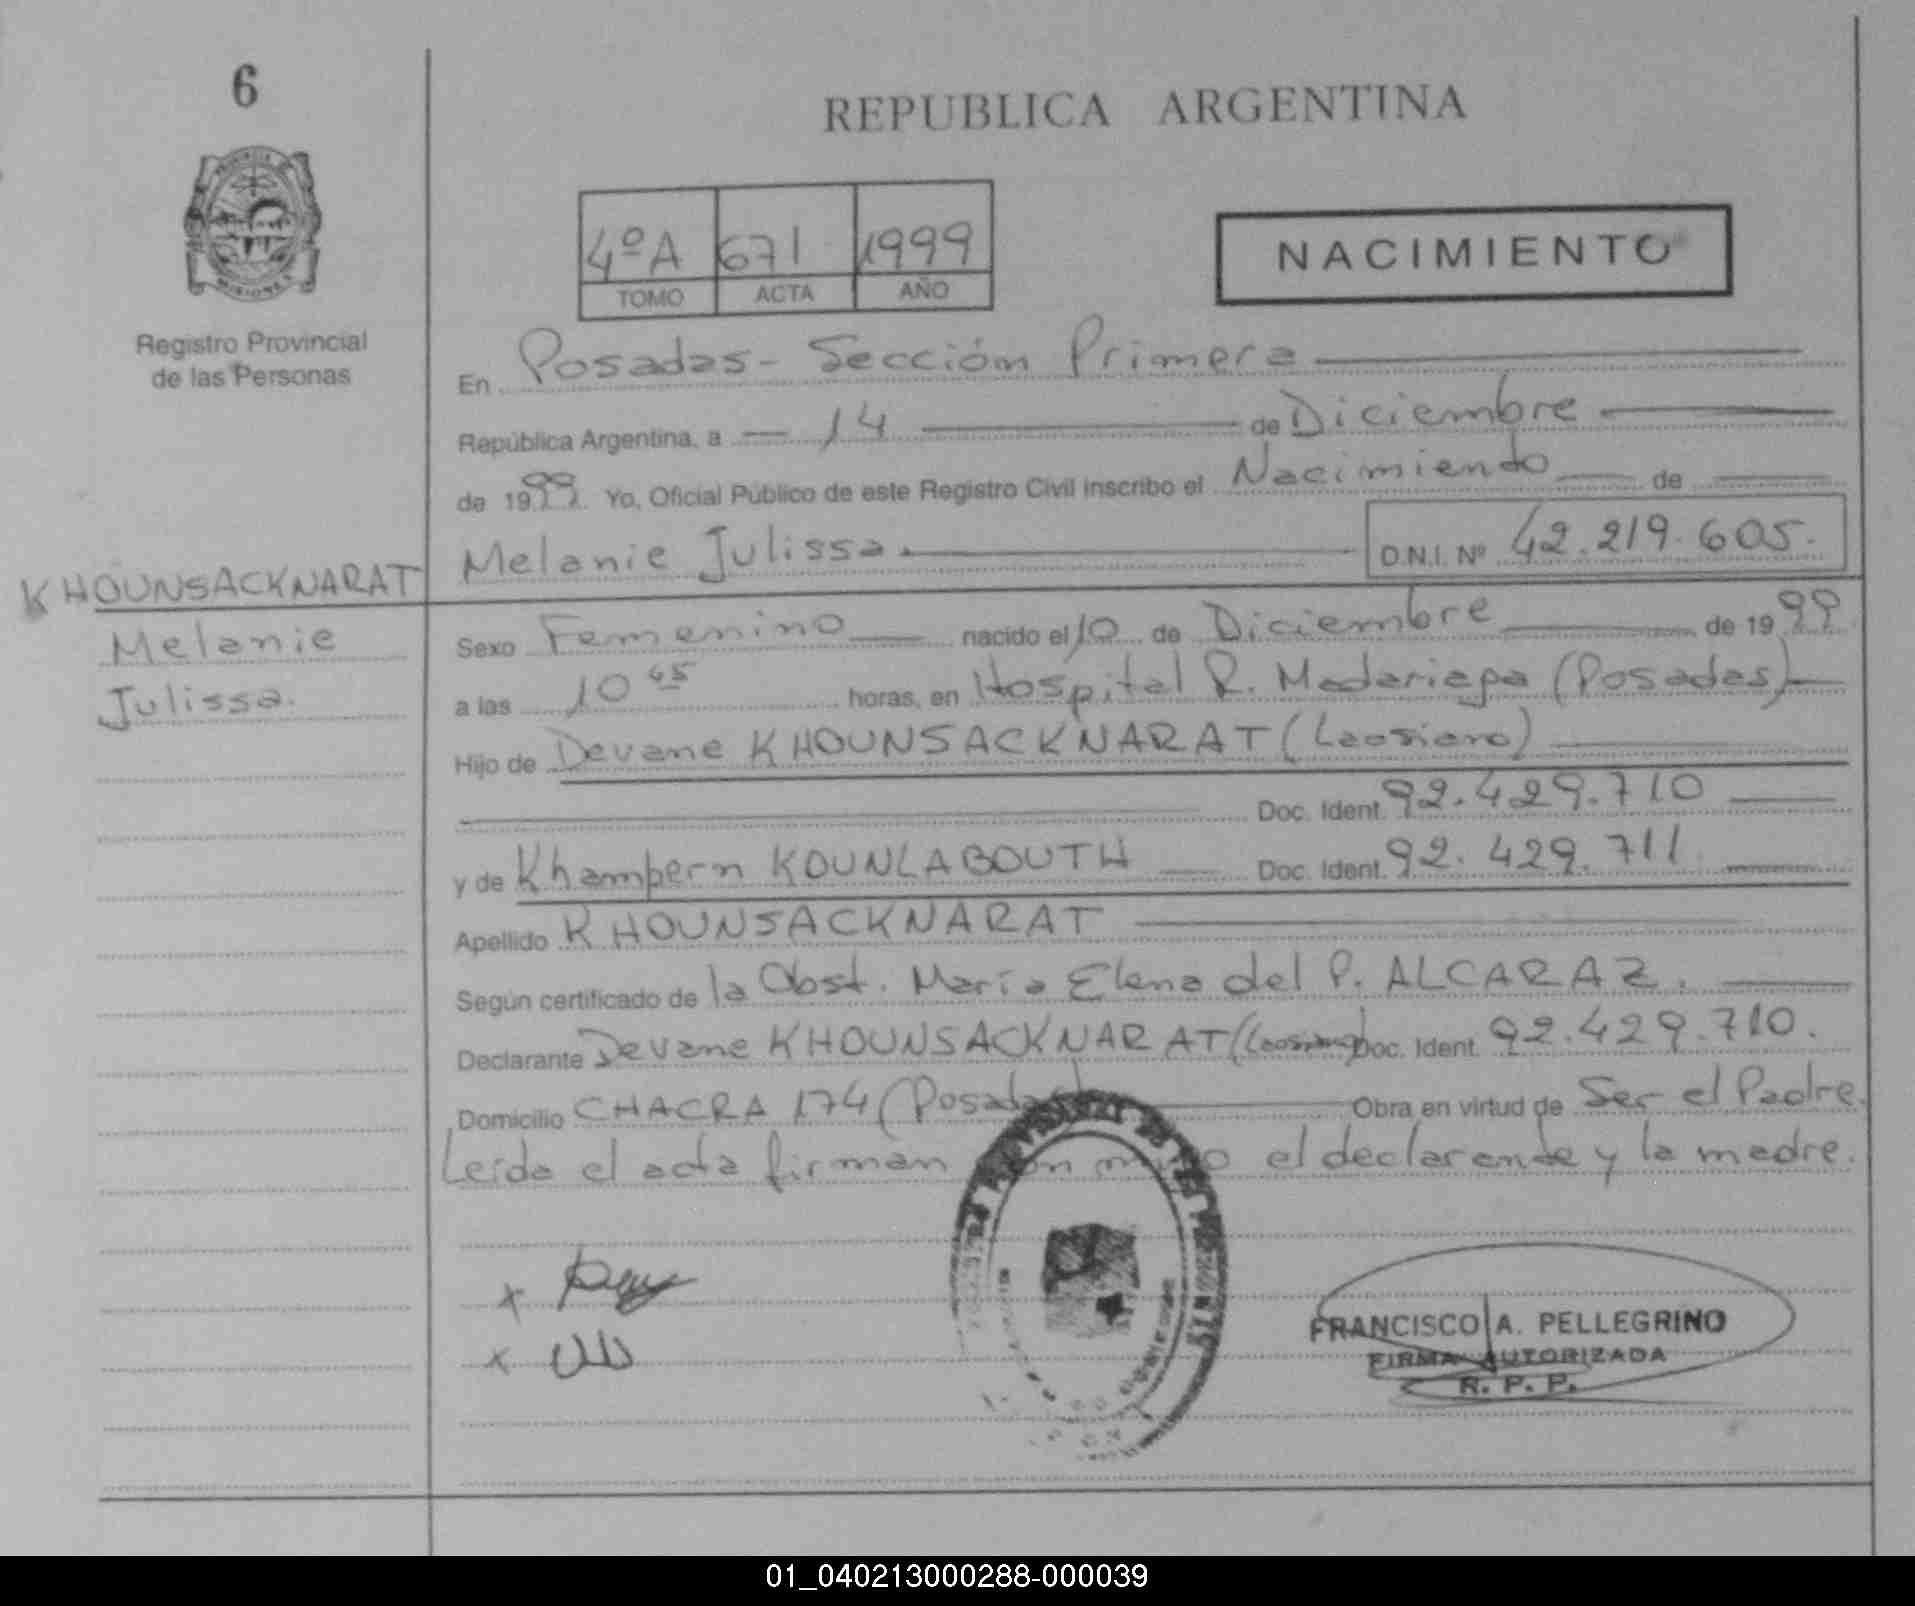 6
REPUBLICA ARGENTINA
MISIONES
4º A 671 1999
TOMO ACTA AÑO
NACIMIENTO
Registro Provincial
de las Personas
En Posadas - Sección Primera
República Argentina, a 14 de Diciembre
de 1999. Yo, Oficial Público de este Registro Civil inscribo el Nacimiento de
Melanie Julissa. D.N.I. Nº 42.219.605.
KHOUNSACKNARAT
Melanie
Julissa.
Sexo Femenino nacido el 10 de Diciembre de 1999
a las 10 45 horas, en Hospital R. Madariaga (Posadas)
Hijo de Devane KHOUNSACKNARAT (Laosiano)
Doc. Ident. 92.429.710
y de Khampern KOUNLABOUTH Doc. Ident. 92.429.711
Apellido KHOUNSACKNARAT
Según certificado de la Obst. María Elena del P. ALCARAZ.
Declarante Devane KHOUNSACKNARAT (Laosiano) Doc. Ident. 92.429.710.
Domicilio CHACRA 174 (Posadas) Obra en virtud de Ser el Padre.
Leída el acta firman el declarante y la madre.
x
x
FRANCISCO A. PELLEGRINO
FIRMA AUTORIZADA
R. P. P.
01_040213000288-000039